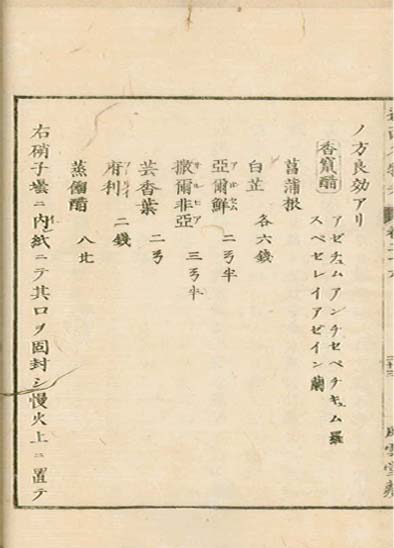 ノ方良効アリ
香竄醋
アゼチュムアンチセペチキュム羅
スペセレイアゼイン蘭
菖蒲根
白芷 各六錢
亞爾鮮 二ヲ半
撒爾非亞 三ヲ半
サルヒア
芸香葉 二ヲ
二錢
蒸餾醋 八
右硝子壜ニ内レ紙ニテ其口ヲ固封シ慢火上ニ置テ